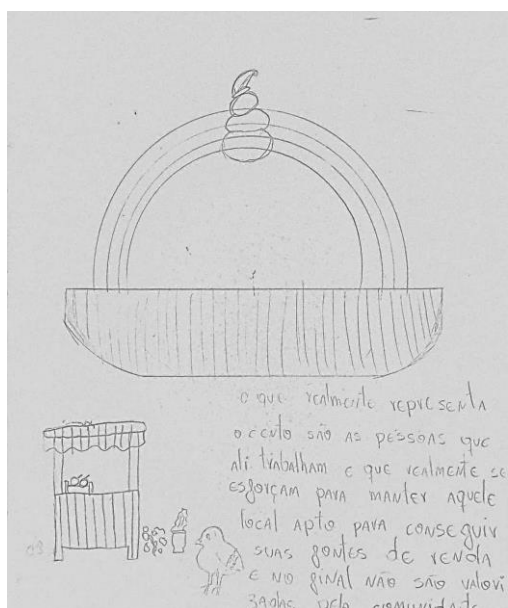 o que realmente representa
o cento são as pessoas que
ali trabalham e que realmente se
esforçam para manter aquele
local apto para conseguir
suas fontes de renda
e no final não são valori
zadas pela comunidade